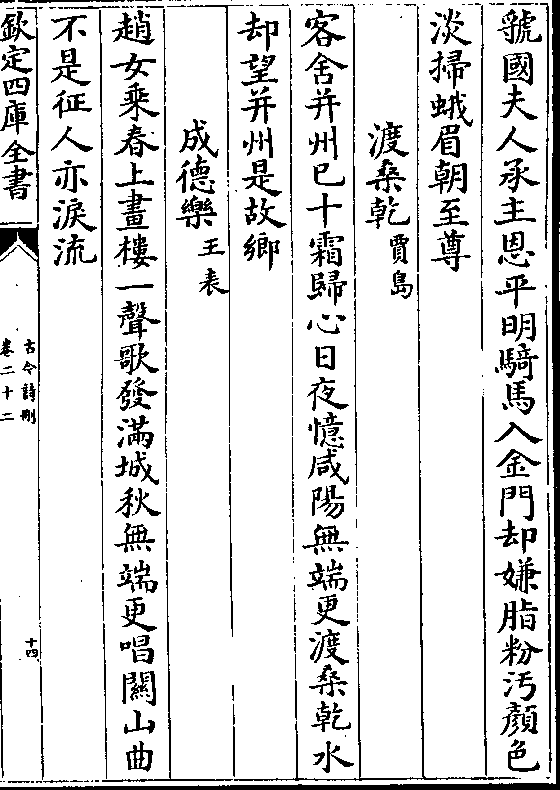 虢國夫人承主恩平明騎馬入金門却嫌脂粉汚顏色
淡掃蛾眉朝至尊
渡桑乾 賈島
客舍并州已十霜歸心日夜憶咸陽無端更渡桑乾水
却望并州是故鄉
成德樂 王表
趙女乘春上畫樓一聲歌發滿城秋無端更唱關山曲
不是征人亦淚流
欽定四庫全書
古今詩刪
卷二十二
十四